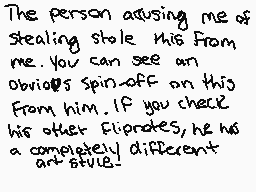 The person acusing me of
stealing stole this from
me. You can see an
obvious spin-off on this
from him. If you check
his other flipnotes, he has
a completely different
art style.